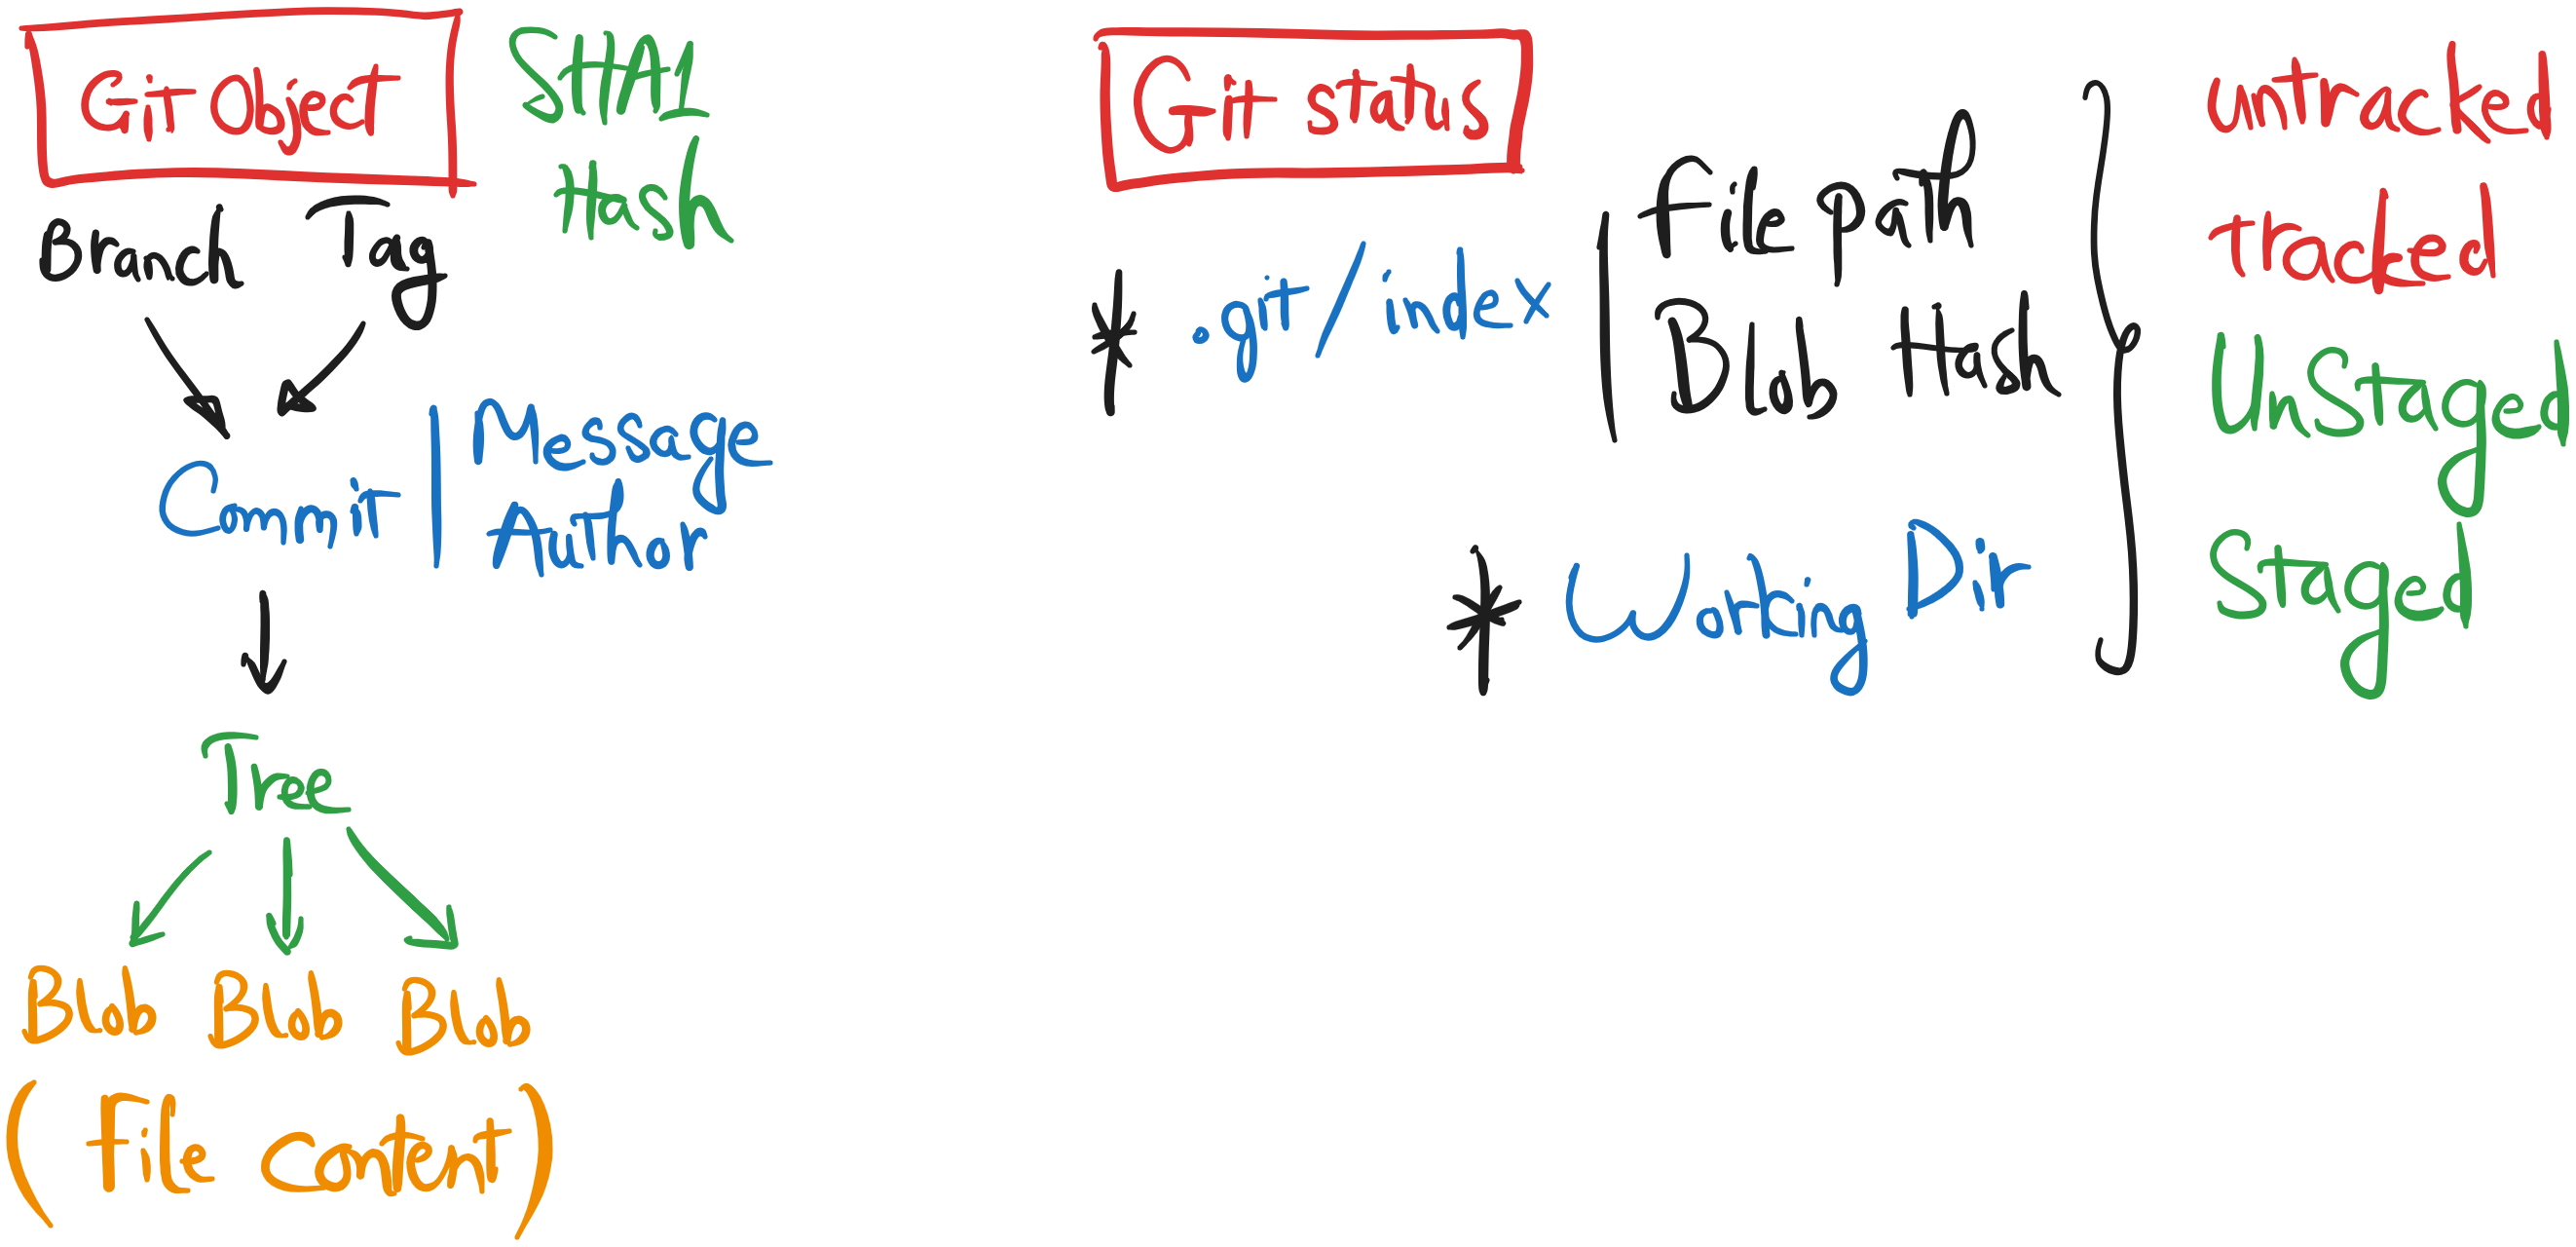 Git Object
SHA1
Hash
Branch Tag
Commit
Message
Author
Tree
Blob Blob Blob
(File Content)
Git status
* .git/index
File path
Blob Hash
* Working Dir
untracked
tracked
UnStaged
Staged